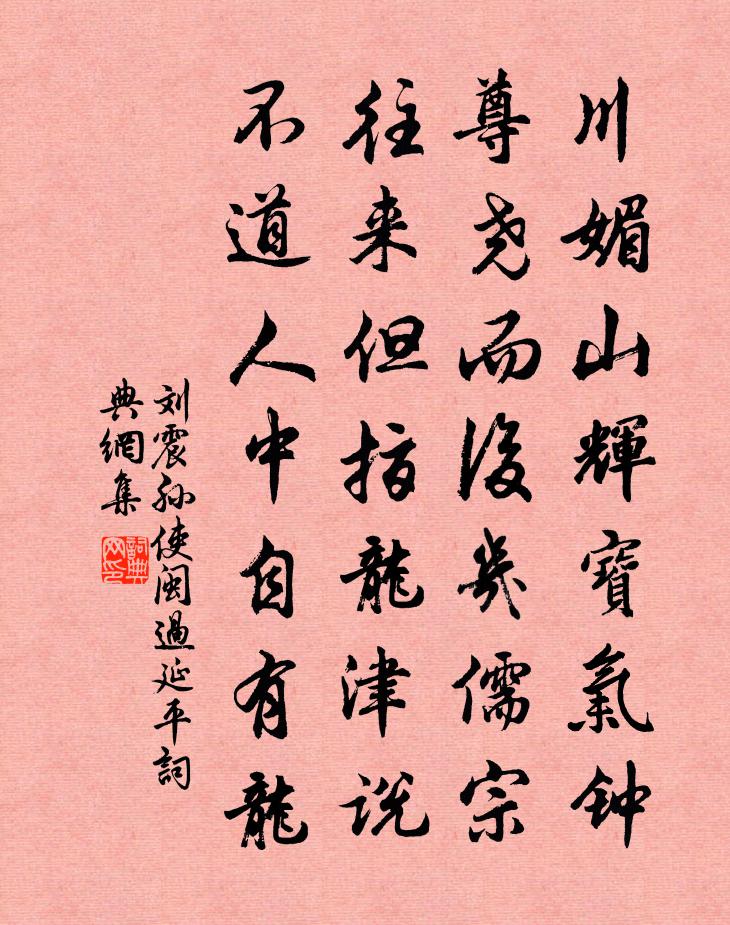 川媚山輝寶氣钟
尊尧而後幾儒宗
往来但指龍津说
不道人中自有龍
刘震孙使闽過延平詞
典網集
詞典
网